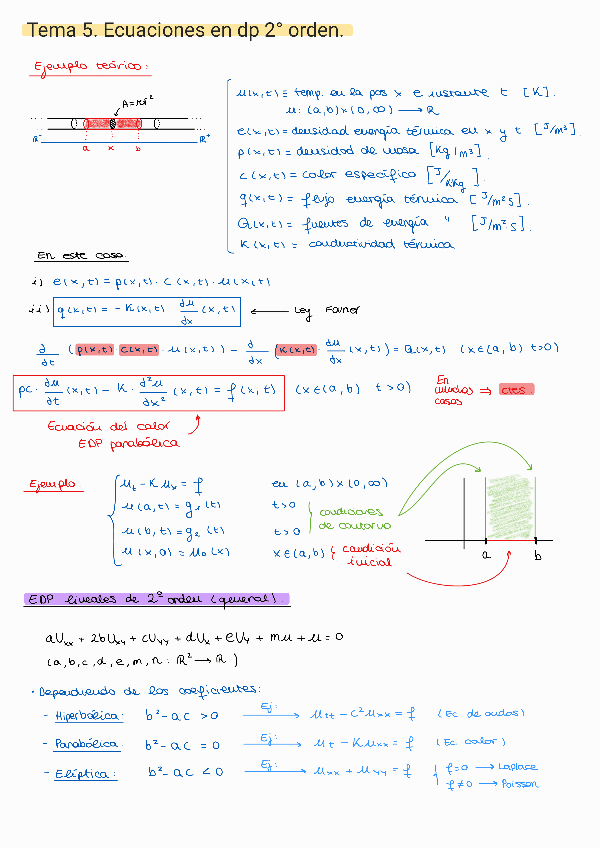 Tema 5. Ecuaciones en dp 2° orden.
Ejemplo teórico:
A=πr²
R⁻ a x b R⁺
u(x,t) ≡ temp. en la pos x e instante t [K].
u: (a,b)×(0,∞) → R
e(x,t) = densidad energía térmica en x y t [J/m³].
ρ(x,t) = densidad de masa [Kg/m³].
c(x,t) = calor específico [J/KKg].
q(x,t) = flujo energía térmica [J/m²s].
Q(x,t) = fuentes de energía " [J/m²·s].
K(x,t) = conductividad térmica
En este caso.
i) e(x,t) = ρ(x,t) · c(x,t) · u(x,t)
ii) q(x,t) = -K(x,t) du/dx (x,t) ← Ley Fourier
d/dt (ρ(x,t) · c(x,t) · u(x,t)) - d/dx (K(x,t) · du/dx (x,t)) = Q(x,t) (x∈(a,b) t>0)
ρc · du/dt (x,t) - K · d²u/dx² (x,t) = f(x,t) (x∈(a,b) t>0) En muchos casos → ctes.
Ecuación del calor
EDP parabólica
Ejemplo
ut - Kux = f en (a,b)×(0,∞)
u(a,t) = g1(t) t>0
u(b,t) = g2(t) t>0
condiciones de contorno
u(x,0) = u0(x) x∈(a,b)
condición inicial
a b
EDP lineales de 2º orden (general).
aUxx + 2bUxy + cUyy + dUx + eUy + mu + u = 0
(a,b,c,d,e,m,n: R² → R)
· Dependiendo de los coeficientes:
- Hiperbólica: b² - ac > 0 Ej: → utt - c²uxx = f (Ec de ondas)
- Parabólica: b² - ac = 0 Ej: → ut - Kuxx = f (Ec calor)
- Elíptica: b² - ac < 0 Ej: → uxx + uyy = f
f=0 → Laplace
f≠0 → Poisson